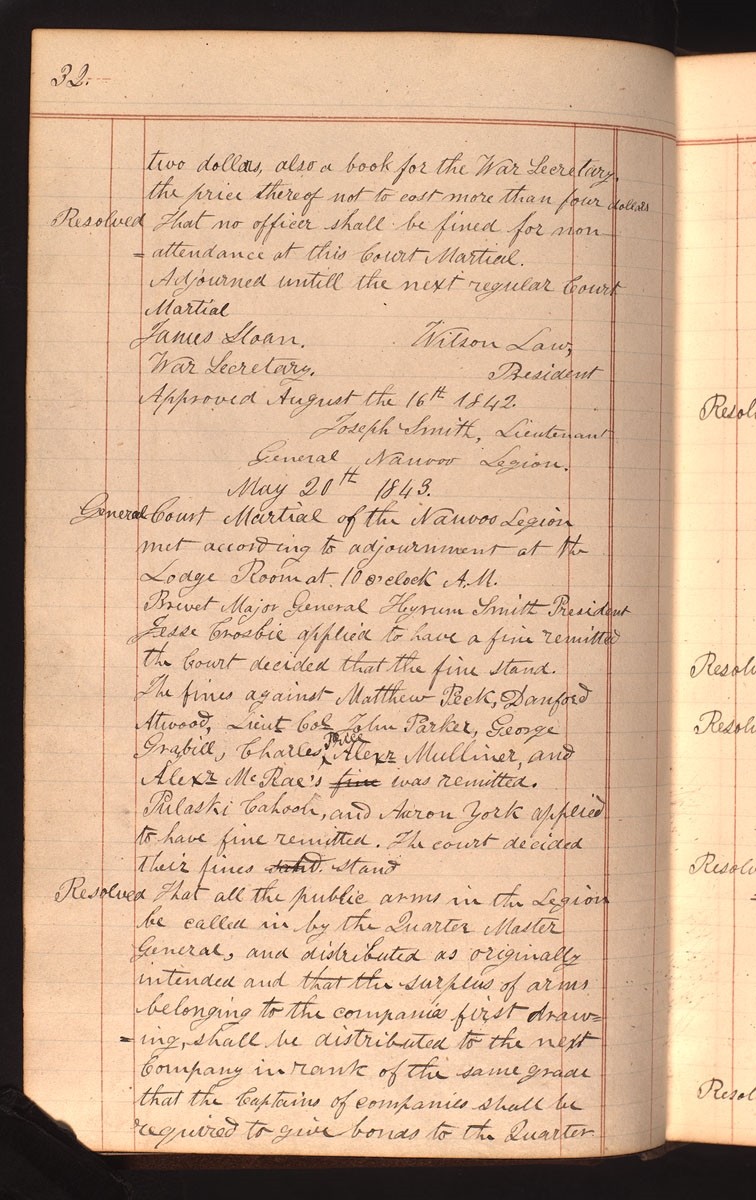 32.
two dollars, also a book for the War Secretary,
the price thereof not to cost more than four dollars
Resolved That no officer shall be fined for non
= attendance at this Court Martial.
Adjourned untill the next regular Court
Martial
James Sloan. Wilson Law,
War Secretary. President
Approved August the 16th 1842.
Joseph Smith, Lieutenant
General Nauvoo Legion.
May 20th 1843.
General Court Martial of the Nauvoo Legion
met according to adjournment at the
Lodge Room at 10 o'clock A.M.
Brevet Major General Hyrum Smith President
Jesse Crosbie applied to have a fine remitted
the Court decided that the fine stand.
The fines against Matthew Peck, Danford
Atwood, Lieut Col John Parker, George
Grabill, Charles Price Alexr Mulliner, and
Alexr McRae's fine was remitted.
Pulaski Cahoon, and Aaron York applied
to have fine remitted. The court decided
their fines stand
Resolved That all the public arms in the Legion
be called in by the Quarter Master
General, and distributed as originally
intended and that the surplus of arms
belonging to the companies first draw=
=ing, shall be distributed to the next
Company in rank of the same grade
that the Captains of companies shall be
required to give bonds to the Quarter
Resolv
Resolv
Resolv
Resolv
Resol